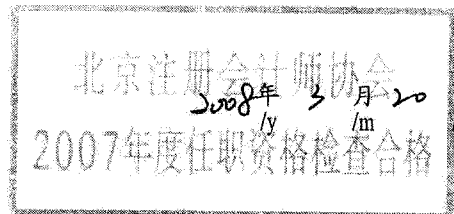 北京注册会计师协会
2008年 3月20
/y /m
2007年度任职资格检查合格